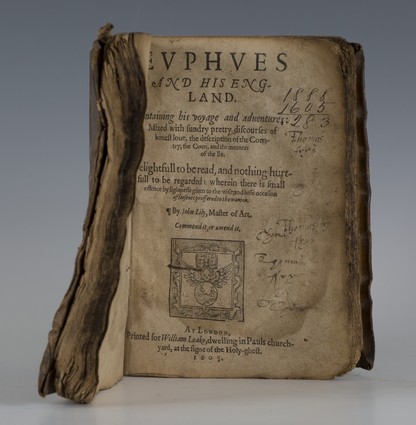 EVPHVES
AND HIS ENG-
LAND.
ntaining his voyage and adventures:
Mixed with sundry pretty discourses of
honest loue, the description of the Coun-
try, the Court, and the manners
of the Ile.
elightfull to be read, and nothing hurt-
full to be regarded: wherein there is small
offence by lightnesse giuen to the wise, and lesse occasion
of loosenes proffered to the wanton.
¶ By Iohn Lily, Master of Art.
Commend it, or amend it.
AT LONDON,
Printed for William Leake, dwelling in Pauls church-
yard, at the signe of the Holy-ghost.
1605.
1888
1605
283
Thomas
Thomas